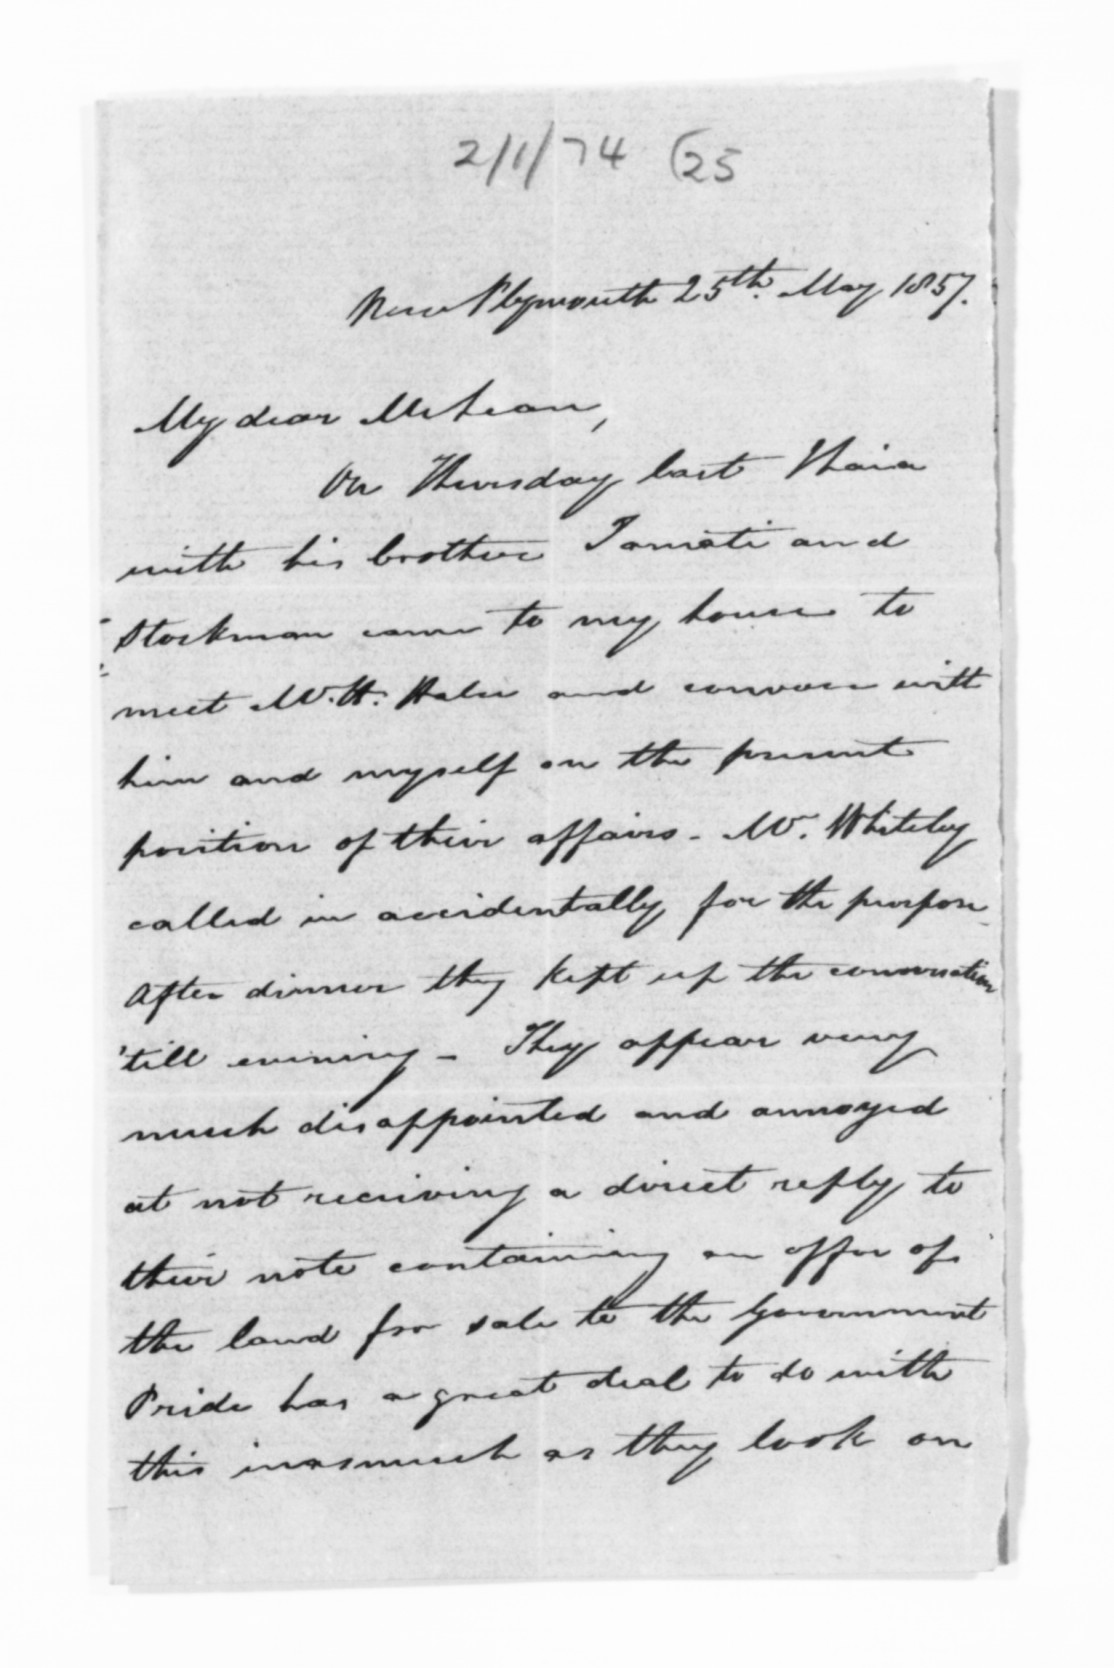 2/1/74 (25
New Plymouth 25th. May 1857.
My dear McLean,
On Thursday last Ihaia
with his brother Tamati and
Stockman came to my house to
meet Mr. H. Halse and converse with
him and myself on the present
position of their affairs - Mr. Whiteley
called in accidentally for the purpose
After dinner they kept up the conversation
'till evening - They appear very
much disappointed and annoyed
at not receiving a direct reply to
their note containing an offer of
the land for sale to the Government
Pride has a great deal to do with
this inasmuch as they look on